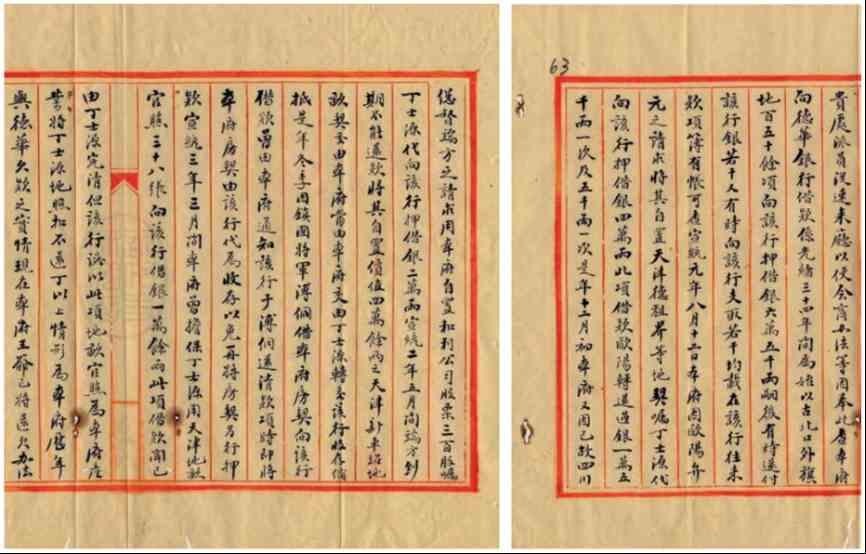 63
貴處派員從速來廳以便会商办法等因奉此查本府
向德華銀行借款係光緒三十四年間為始以古北口外旗
地百五十餘項向該行押借銀六萬五千兩嗣後有時還付
該行銀若干又有時向該行支取若干均載在該行往來
款項簿有帳可查宣統元年八月十二日本府因歐陽弁
元之請求將其自置天津德租界等地契囑丁士源代
向該行押借銀四萬兩此項借款歐陽轉還過銀一萬五
千兩一次及五千兩一次是年十二月初本府又因已故四川
總督端方之請求用本府自置和利公司股票三百股囑
丁士源代向該行押借銀二萬兩宣統二年五月間端方到
期不能還款將其自置價值四萬餘兩之天津卦車地
畝契交由本府當由本府交由丁士源轉交該行收存備
抵是年冬季因鎮國將軍溥侗借本府房契向該行
借款曾由本府通知該行于溥侗還清款項時即將
本府房契由該行代為收存以免再將房契另行押
款宣統三年三月間本府曾擔保丁士源用天津地畝
官照三十八張向該行借銀一萬餘兩此項借款聞已
由丁士源完清但該行誤以此項地畝官照為本府產
業將丁士源地照扣不還丁以上情形為本府歷年
與德華欠款之實情現在本府王爺已將還欠办法